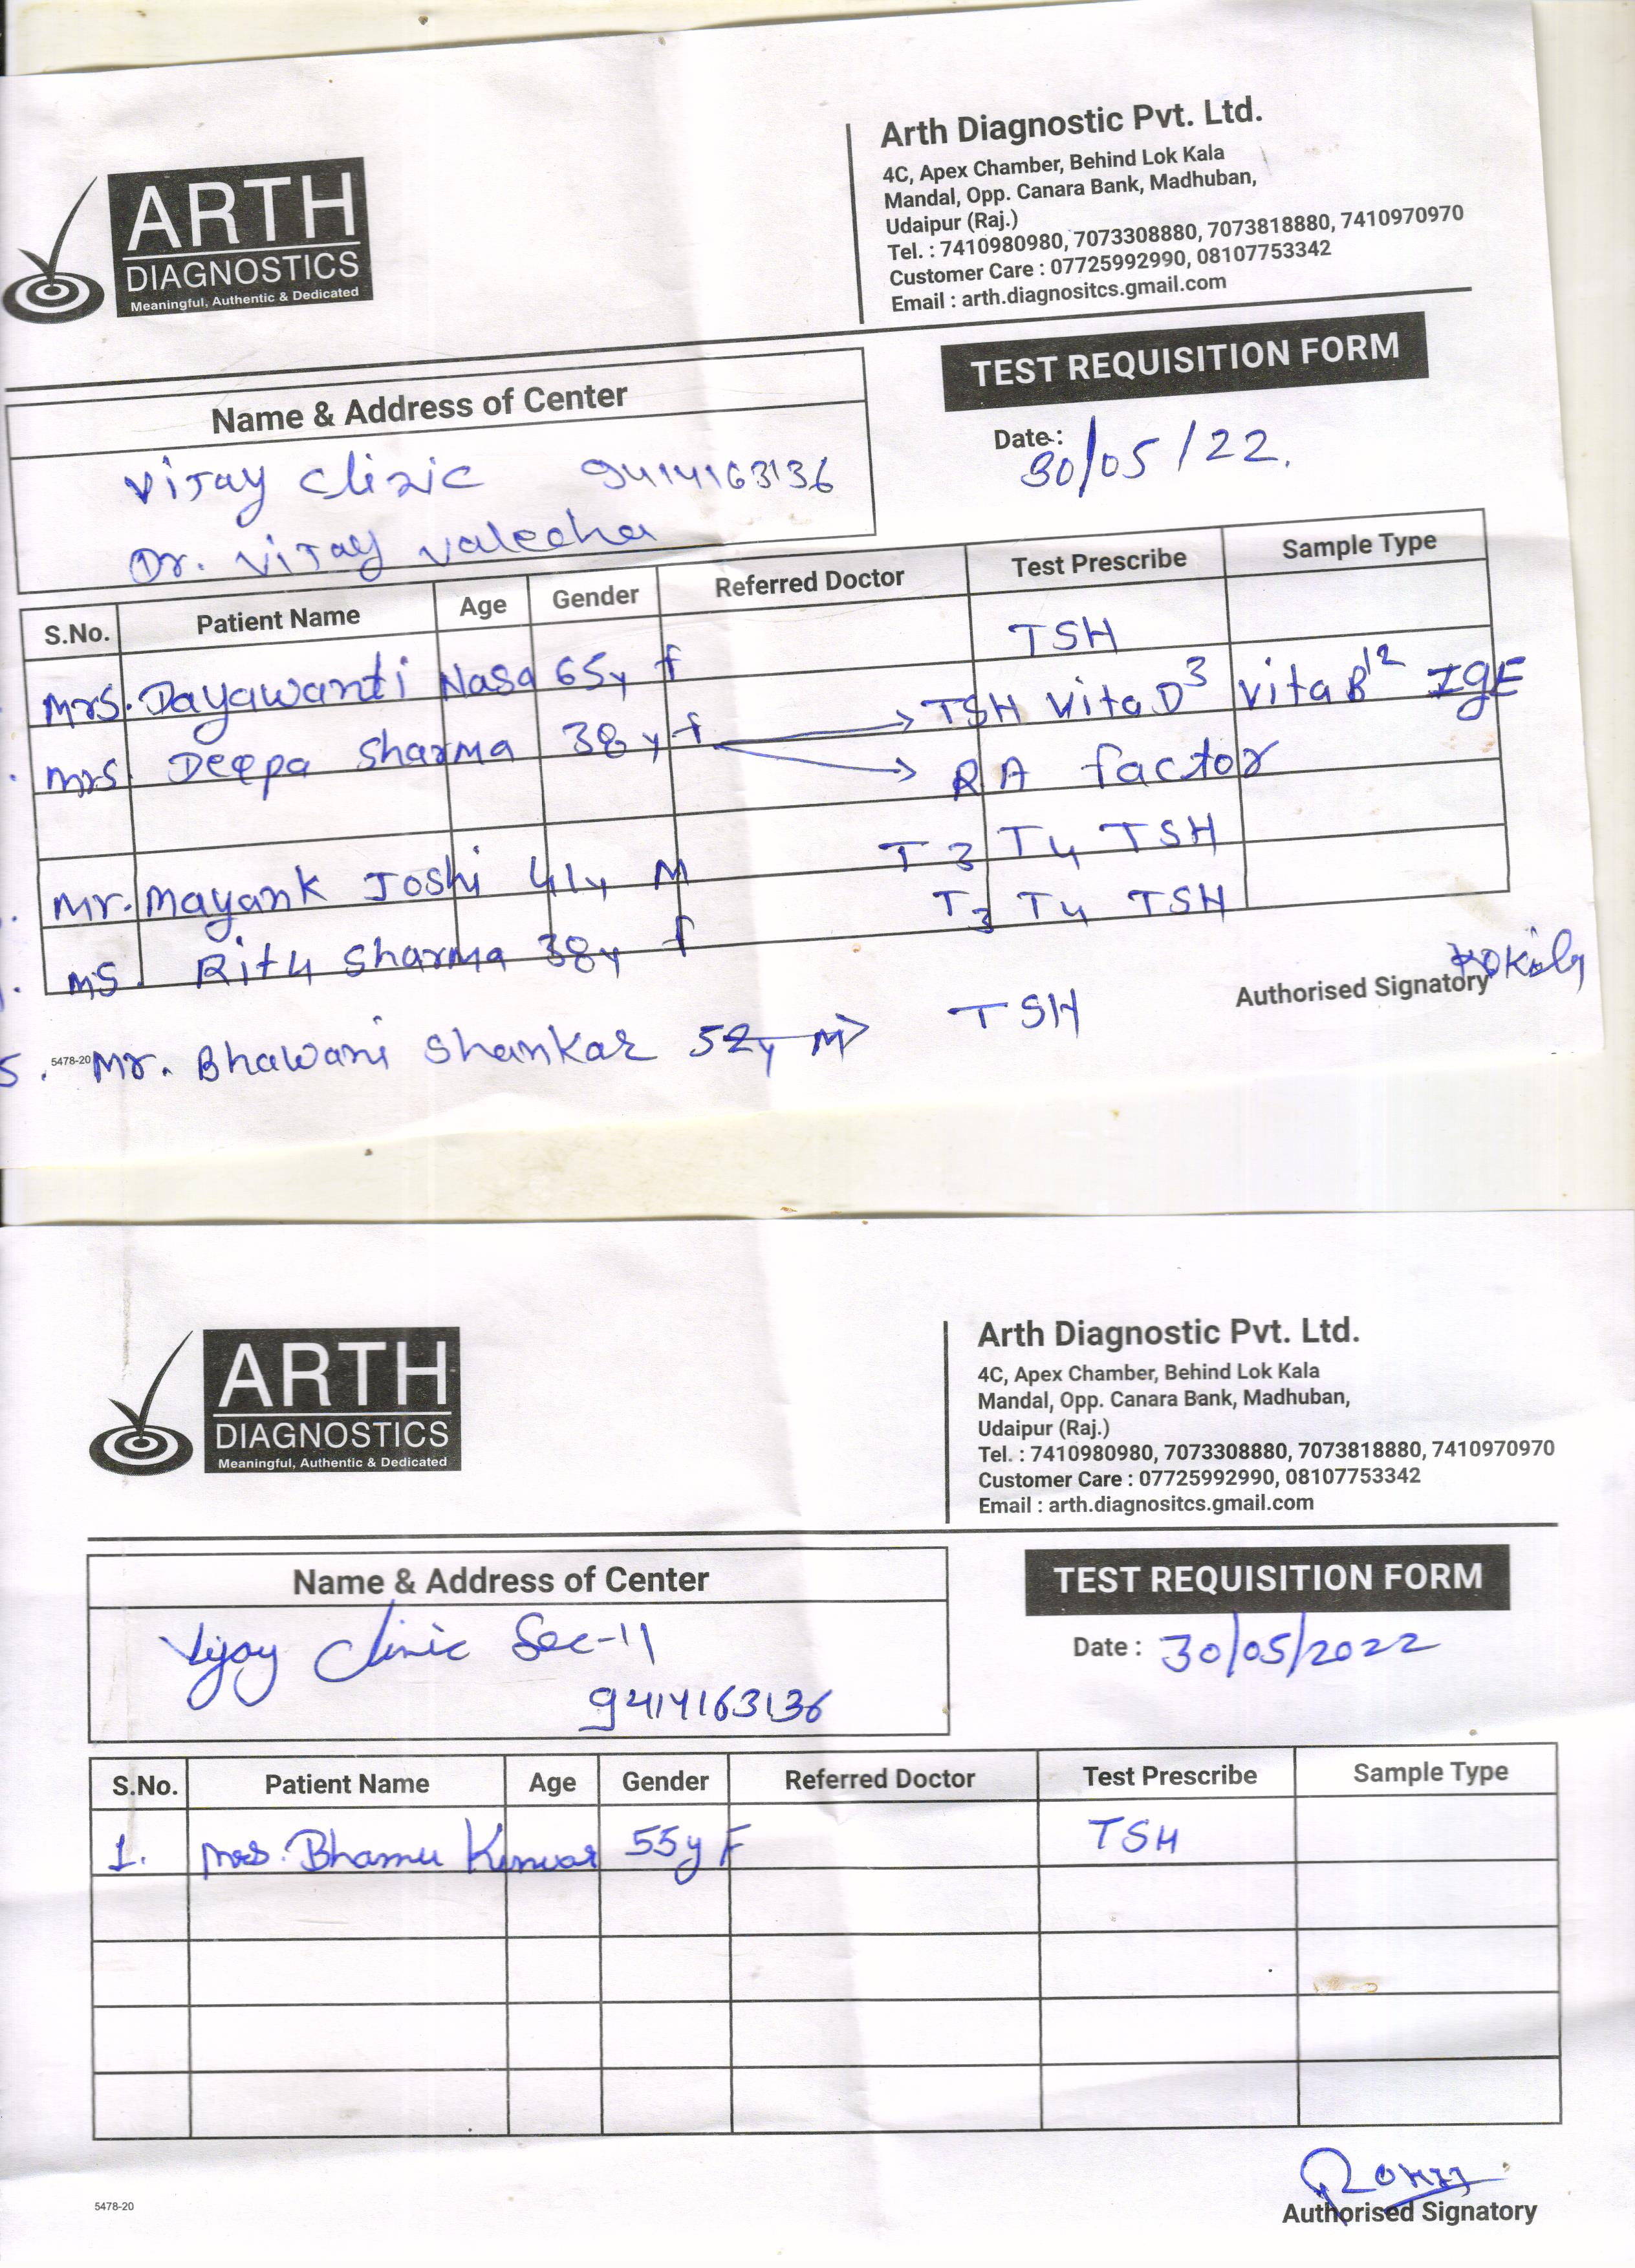 ARTH
DIAGNOSTICS
Meaningful, Authentic & Dedicated
Arth Diagnostic Pvt. Ltd.
4C, Apex Chamber, Behind Lok Kala
Mandal, Opp. Canara Bank, Madhuban,
Udaipur (Raj.)
Tel. : 7410980980, 7073308880, 7073818880, 7410970970
Customer Care : 07725992990, 08107753342
Email : arth.diagnositcs.gmail.com
TEST REQUISITION FORM
Name & Address of Center
Date : 30/05/22.
Vijay Clinic 9414163136
Dr. Vijay Valecha
S.No. Patient Name Age Gender Referred Doctor Test Prescribe Sample Type
Mrs. Dayawanti Nasa 65y f TSH
Mrs. Deepa Sharma 38y f → TSH Vita D3 Vita B12 IgE
→ RA factor
Mr. Mayank Joshi 41y M T3 T4 TSH
Ms. Ritu Sharma 38y f T3 T4 TSH
Authorised Signatory
5. 5478-20 Mr. Bhawani Shankar 52y M → TSH
ARTH
DIAGNOSTICS
Meaningful, Authentic & Dedicated
Arth Diagnostic Pvt. Ltd.
4C, Apex Chamber, Behind Lok Kala
Mandal, Opp. Canara Bank, Madhuban,
Udaipur (Raj.)
Tel. : 7410980980, 7073308880, 7073818880, 7410970970
Customer Care : 07725992990, 08107753342
Email : arth.diagnositcs.gmail.com
Name & Address of Center
TEST REQUISITION FORM
Vijay Clinic Sec-11
9414163136
Date : 30/05/2022
S.No. Patient Name Age Gender Referred Doctor Test Prescribe Sample Type
1. Mrs. Bhamu Kunwar 55y F TSH
Authorised Signatory
5478-20